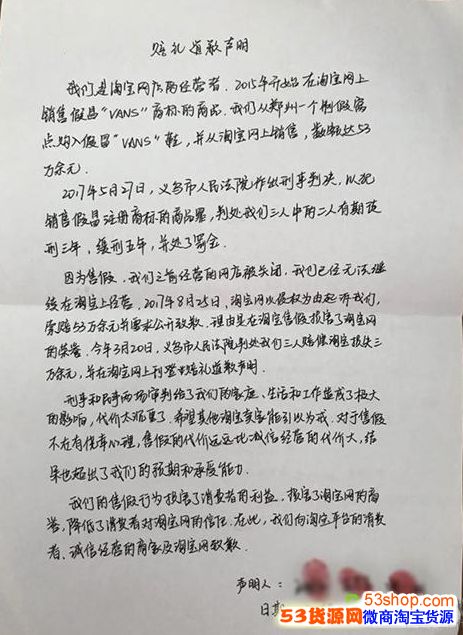 赔礼道歉声明
我们是淘宝网店的经营者。2015年开始在淘宝网上
销售假冒“VANS”商标的商品。我们从郑州一个制假窝
点购入假冒“VANS”鞋，并从淘宝网上销售，数额达53
万余元。
2017年5月27日，义乌市人民法院作出刑事判决，以犯
销售假冒注册商标的商品罪，判处我们三人中的二人有期徒
刑三年，缓刑五年，并处了罚金。
因为售假，我们之前经营的网店被关闭，我们已经无法继
续在淘宝上经营。2017年8月25日，淘宝网以侵权为由起诉我们，
索赔53万余元并要求公开致歉，理由是在淘宝售假损害了淘宝网
的荣誉。今年3月20日，义乌市人民法院判处我们三人赔偿淘宝损失三
万余元，并在淘宝网上刊登赔礼道歉声明。
刑事和民事两场审判给了我们的家庭、生活和工作造成了极大
的影响，代价太沉重了。希望其他淘宝卖家能引以为戒，对于售假
不在有侥幸心理，售假的代价远远比诚信经营的代价大，结
果也超出了我们的预期和承受能力。
我们的售假行为损害了消费者的利益，损害了淘宝网的商
誉，降低了消费者对淘宝网的信任。在此，我们向淘宝平台的消费
者、诚信经营的商家及淘宝网致歉。
声明人：
日期
53shop.com
53货源网 微商淘宝货源